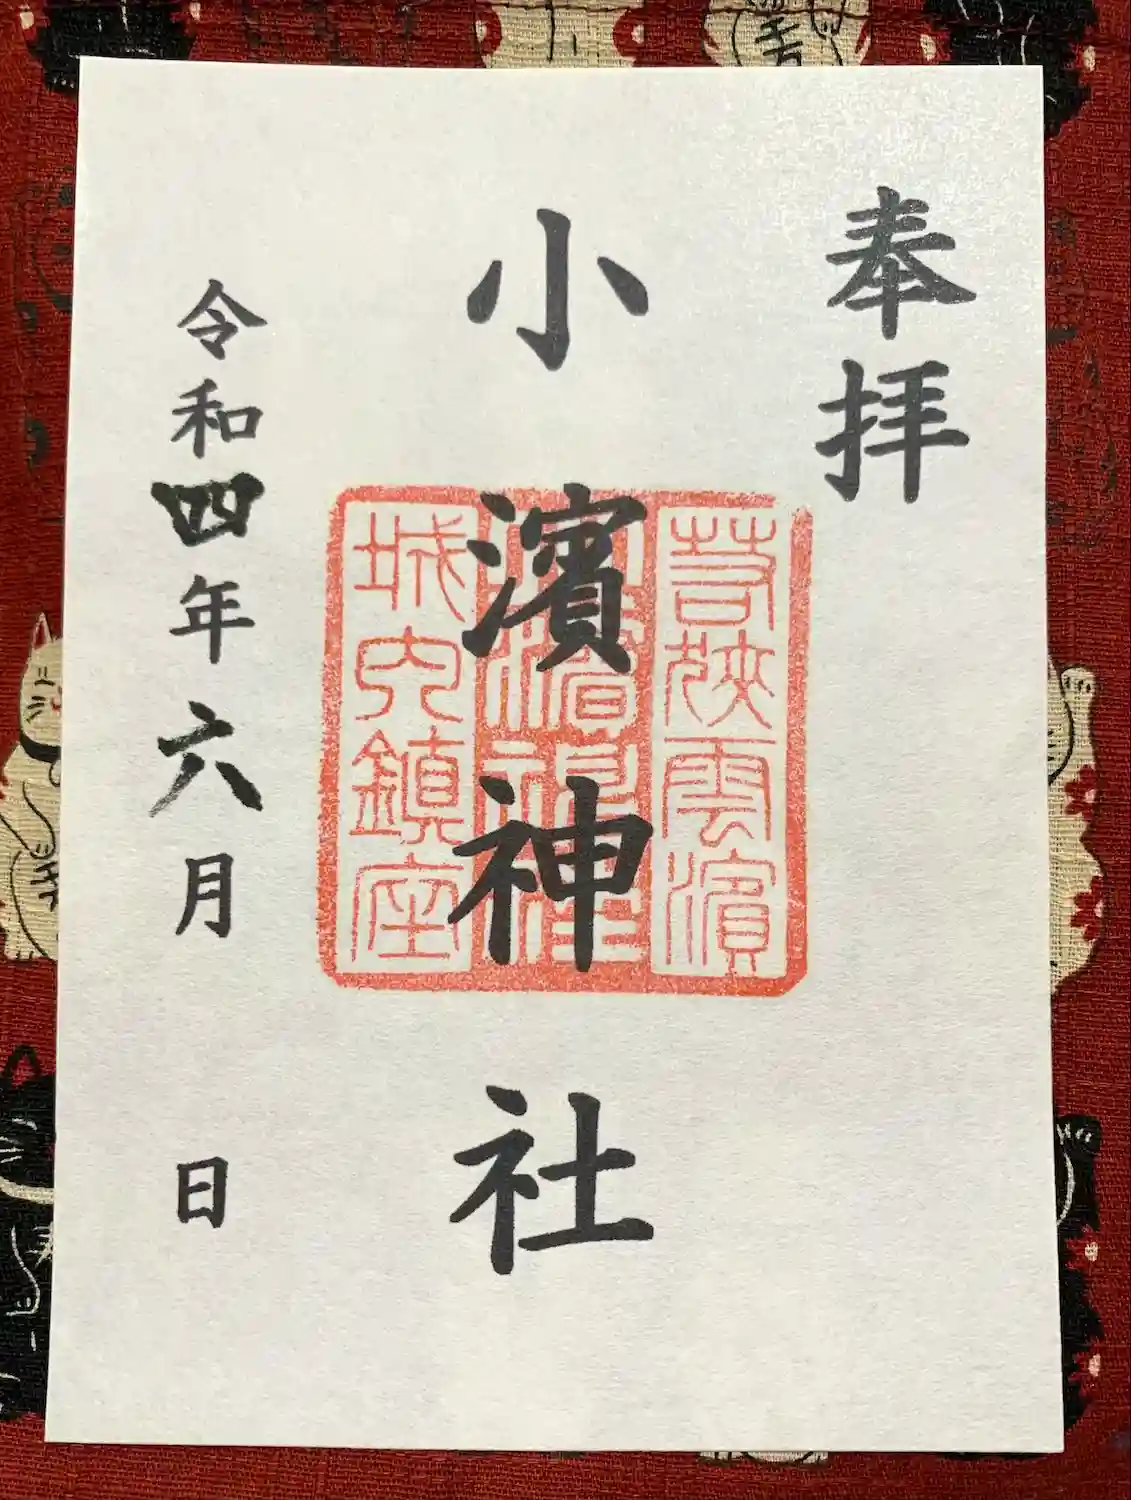 奉拝
小濱神社
若狹雲濱
小濱神社
城内鎮座
令和四年六月 日